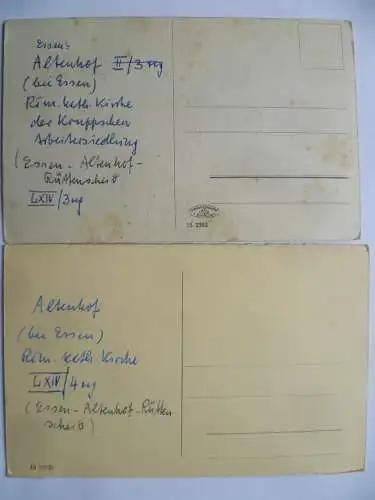 Essen's
Altenhof II/3 ng
(bei Essen)
Röm. kath. Kirche
der Kruppschen
Arbeitersiedlung
(Essen-Altenhof-
Rüttenscheid
LXIV/3 ng
15 2302
Altenhof
(bei Essen)
Röm. kath. Kirche
LXIV/4 ng
(Essen-Altenhof-Rütten
scheid)